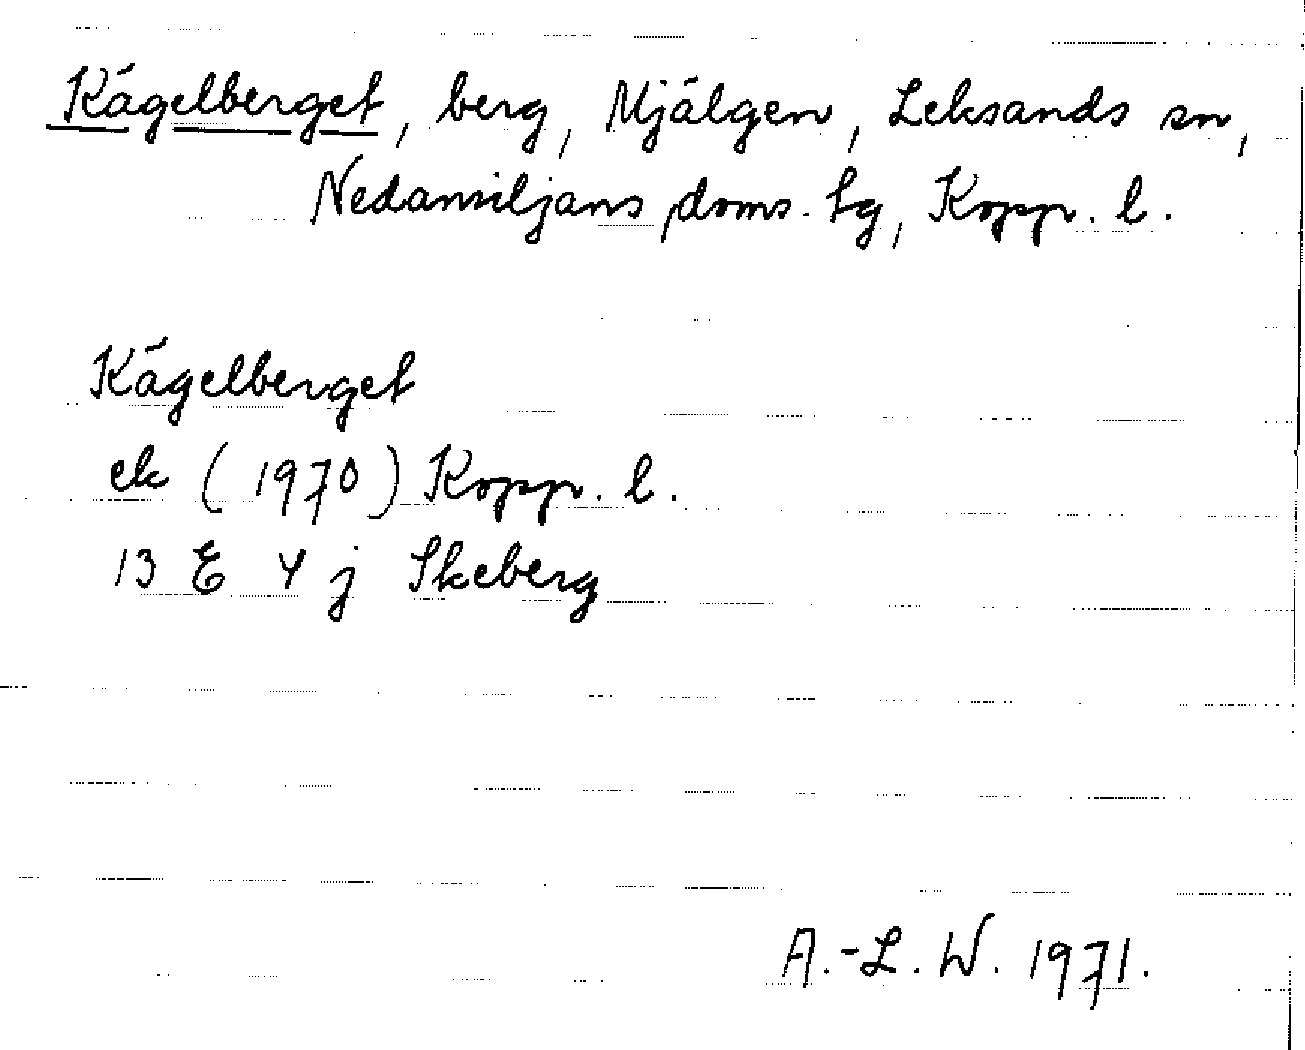 Kägelberget, berg, Mjälgen, Leksands sn,
Nedansiljans doms. tg, Kopp. l.
Kägelberget
ek (1970) Kopp. l.
13 E 4 j Skeberg
A.-L. W. 1971.